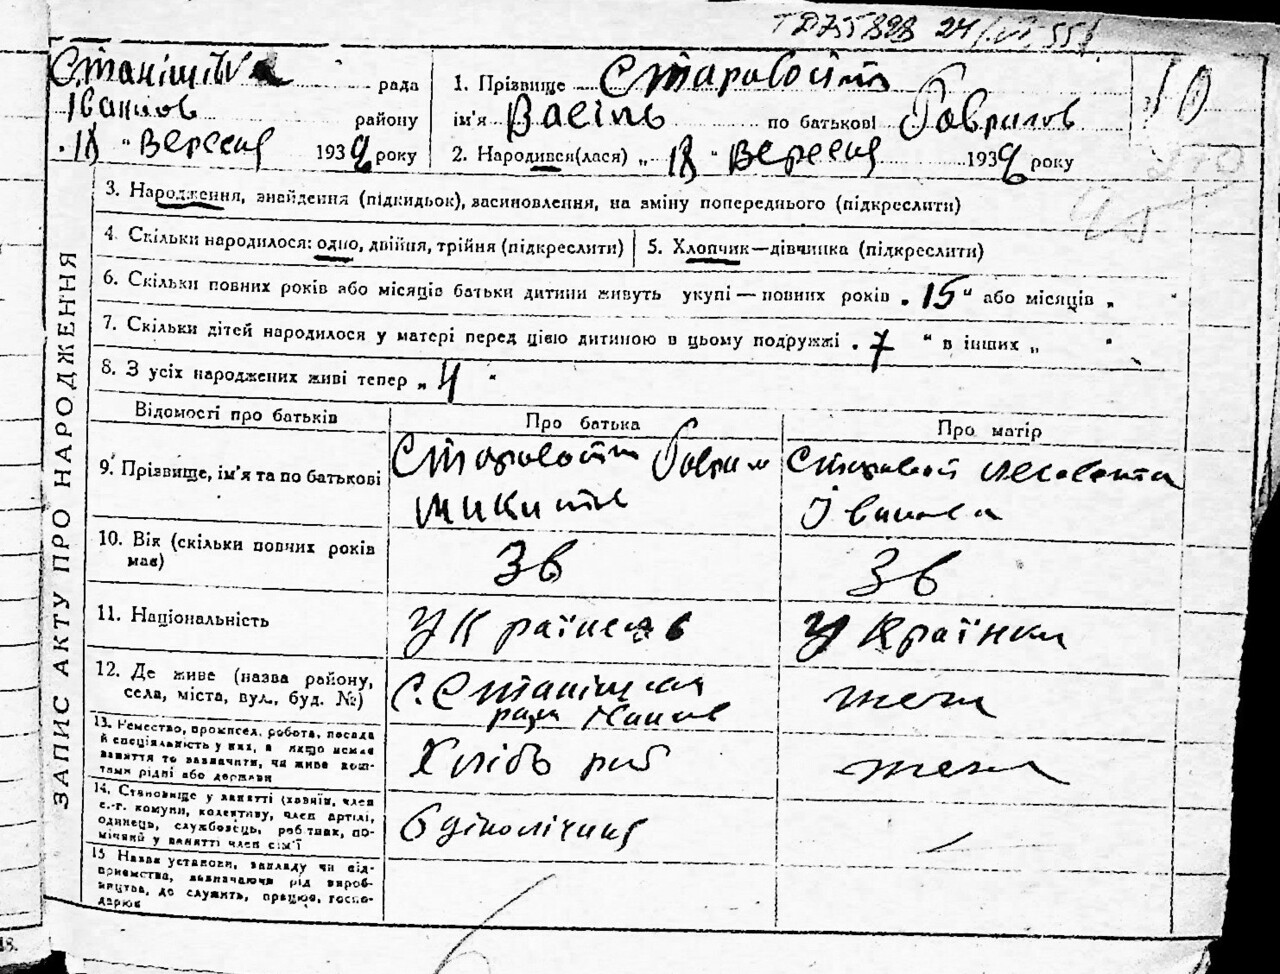 24/VI.55
Станішівка рада
Іванков району
„18 “ Вересня 1939 року
10
1. Прізвище Старовойт
ім'я Васіль по батькові Гаврилов
2. Народився(лася) „ 18 “ Вересня 1939 року
3. Народження, знайдення (підкидьок), засиновлення, на зміну попереднього (підкреслити)
4. Скільки народилося: одно, двійня, трійня (підкреслити)
5. Хлопчик—дівчинка (підкреслити)
6. Скільки повних років або місяців батьки дитини живуть укупі — повних років „ 15 “ або місяців „ “
7. Скільки дітей народилося у матері перед цією дитиною в цьому подружжі „ 7 “ в інших „ “
8. З усіх народжених живі тепер „ 4 “
ЗАПИС АКТУ ПРО НАРОДЖЕННЯ
Відомості про батьків
Про батька
Про матір
9. Прізвище, ім'я та по батькові
Старовойт Гаврил
Микит
Старовойт
Іванова
10. Вік (скільки повних років
має)
36
36
11. Національність
Українець
Українка
12. Де живе (назва району,
села, міста, вул., буд. №)
С. Станішская
рада
теж
13. Ремество, промисел, робота, посада
й спеціальність у них, а якщо немає
заняття то зазначити, чи живе кош-
тами рідні або держави
Хлібороб
теж
14. Становище у занятті (хазяїн, член
с.-г. комуни, колективу, член артілі,
одинець, службовець, робітник, по-
мічний у занятті член сім'ї
Одноліч
15 Назва установи, закладу чи під-
приємства, зазначаючи рід вироб-
ництва, де служить, працює, госпо-
дарює
18.